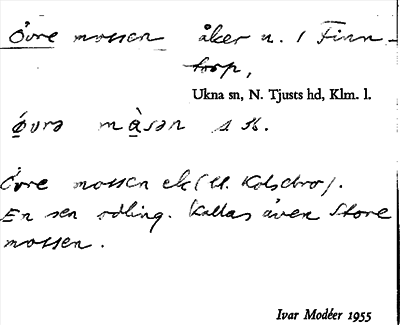 Övre mossen åker n. / Finn-
torp,
Ukna sn, N. Tjusts hd, Klm. l.
ǿvrə màsən
Övre mossen ek (H. Kolsebro).
En sen odling. Kallas även Store
mossen.
Ivar Modéer 1955